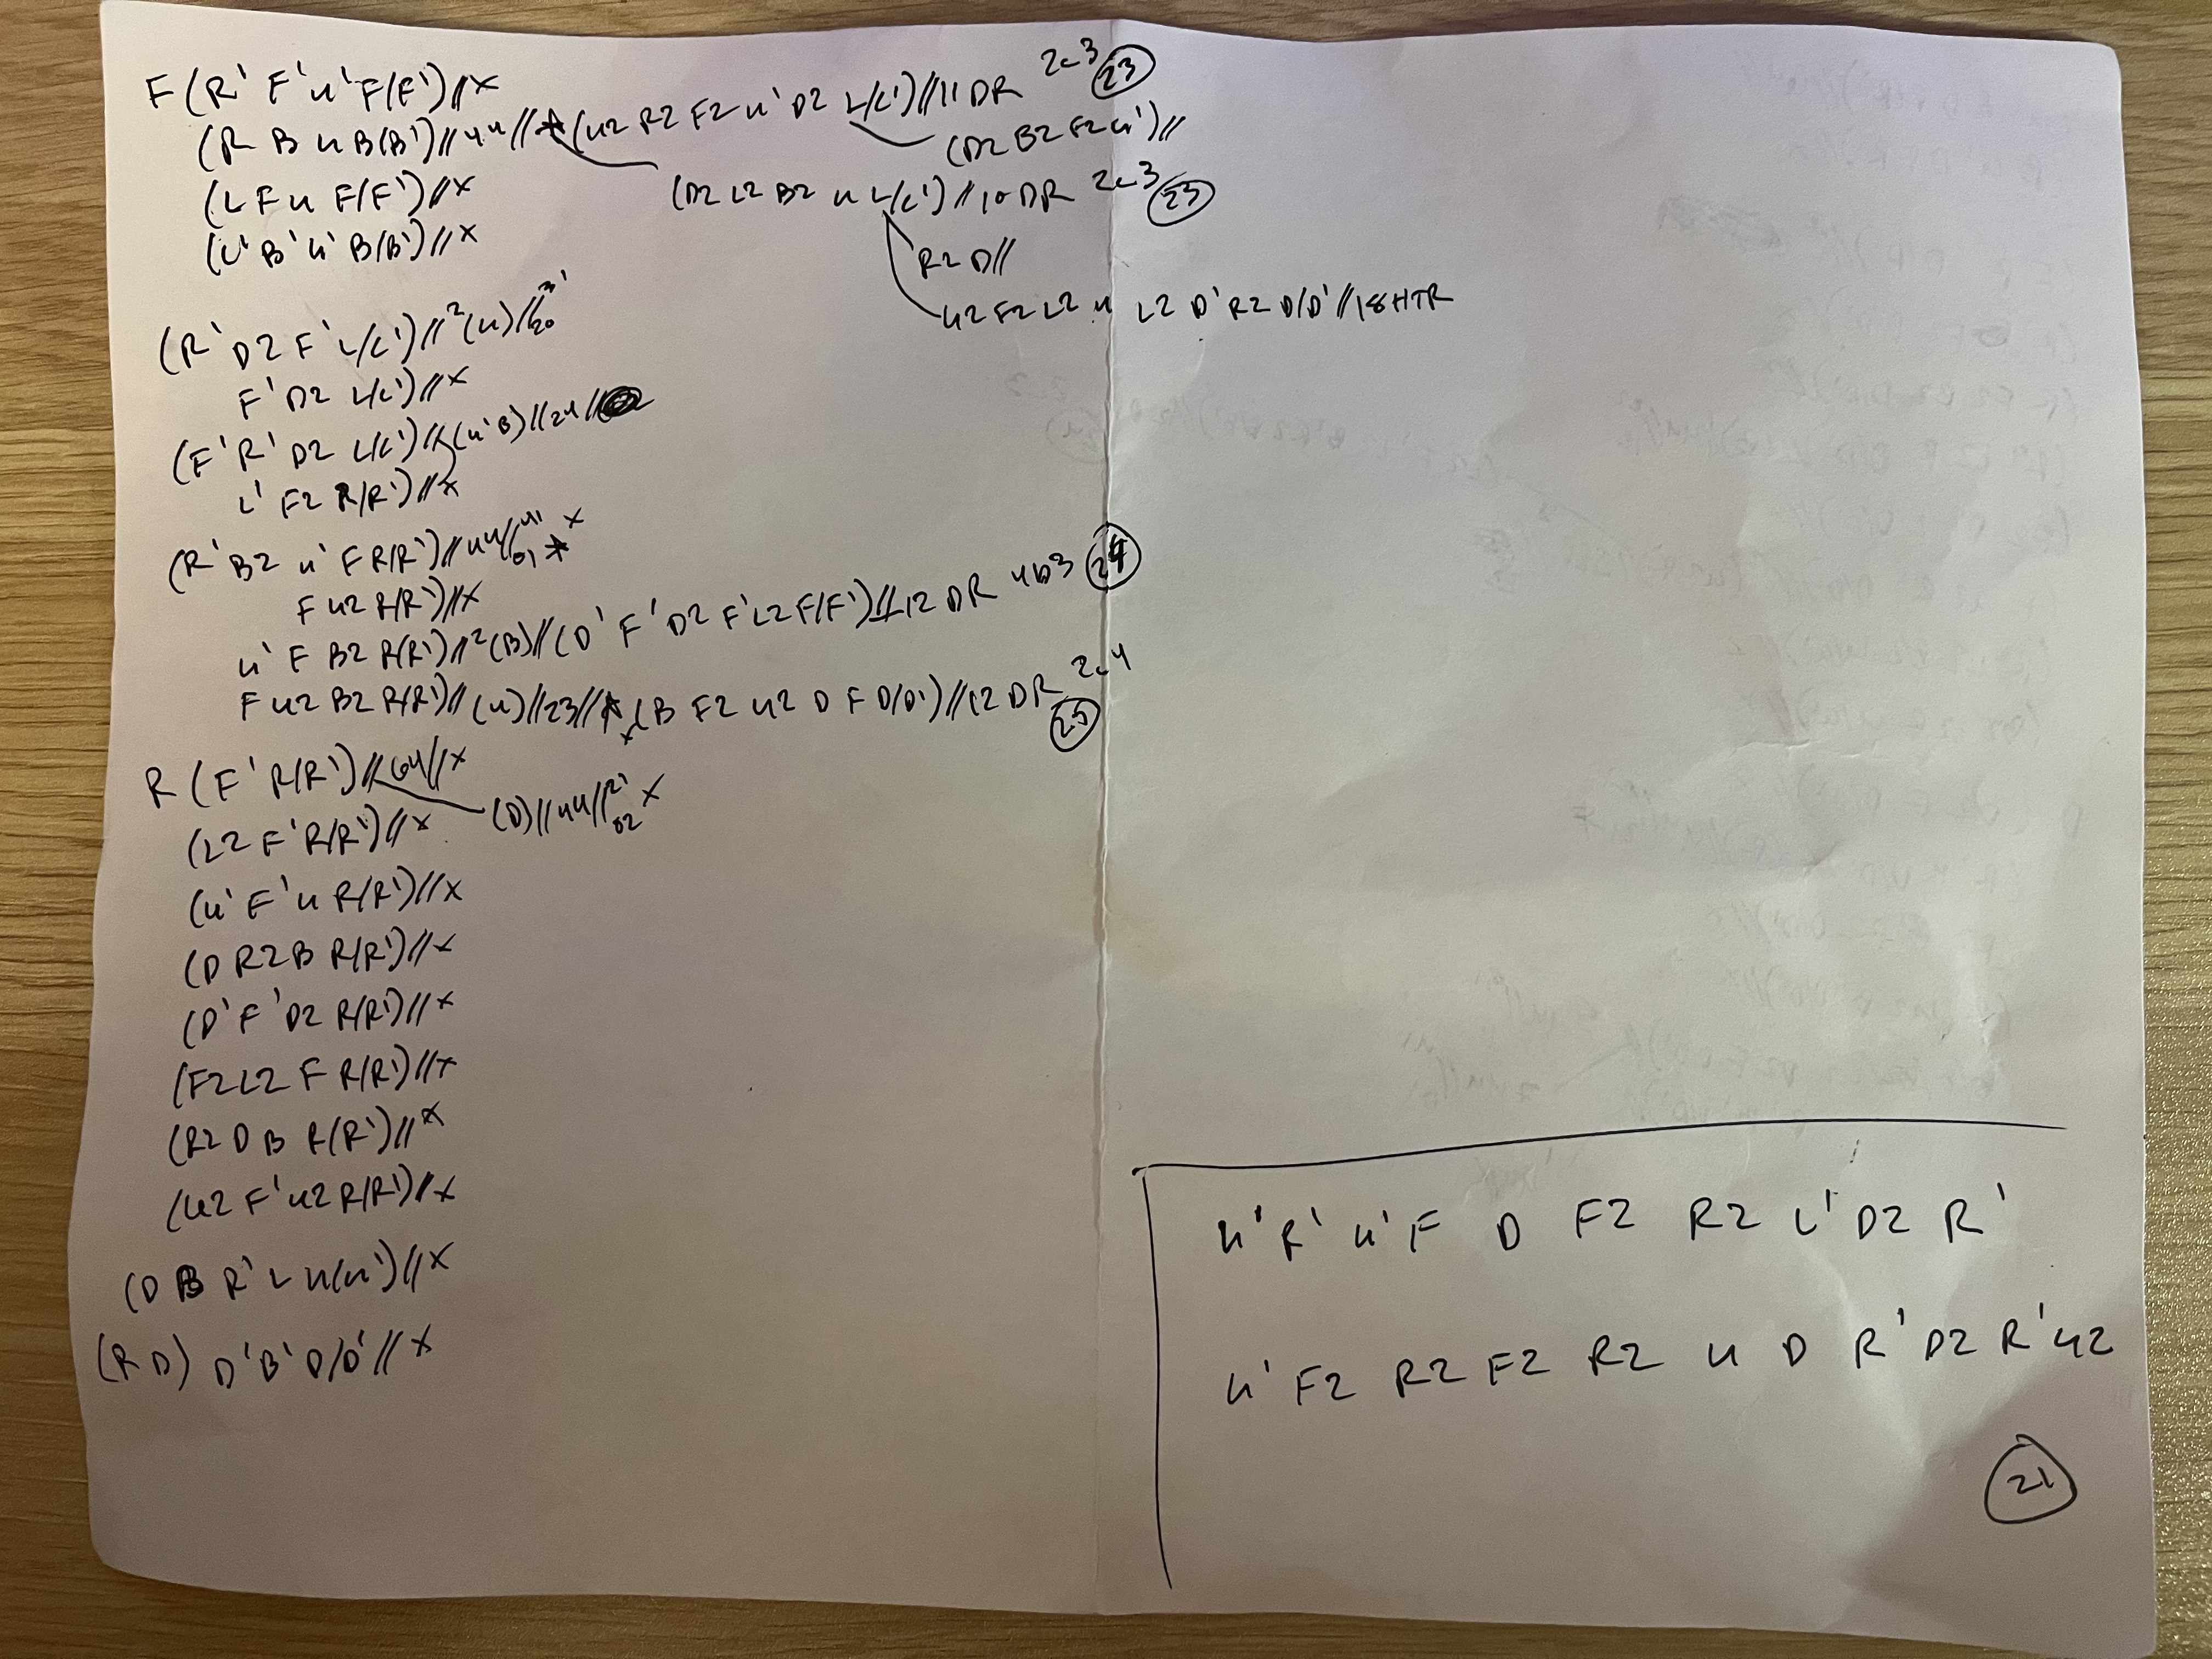 F (R' F' u' F/F') // x
(R B u B(B') // 4u // * (u2 R2 F2 u' D2 L/L') // 11 DR 2c3 (23)
(D2 B2 F2 u') //
(L F u F/F') // x
(D2 L2 B2 u L/L') // 10 DR 2c3 (23)
(L' B' u' B/B') // x
R2 D //
u2 F2 L2 u L2 D' R2 D/D' // 18 HTR
(R' D2 F' L/L') // 2(u) // 3' 20
F' D2 L/L') // x
(F' R' D2 L/L') // (u' B) // 24 //
L' F2 R/R') // x
(R' B2 u' F R/R') // 44 // 4' 01 * x
F u2 R/R') // x
u' F B2 R/R') // 2(B) // (D' F' D2 F' L2 F/F') // 12 DR 4b3 (24)
F u2 B2 R/R') // (u) // 23 // * x (B F2 u2 D F D/D') // 12 DR 2c4 (25)
R (F' R/R') // 64 // x
(D) // 44 // 2' 02 x
(L2 F' R/R') // x
(u' F' u R/R') // x
(D R2 B R/R') // x
(D' F' D2 R/R') // x
(F2 L2 F R/R') // x
(R2 D B R/R') // x
(u2 F' u2 R/R') // x
(D B R' L u/u') // x
(R D) D' B' D/D' // x
u' R' u' F D F2 R2 L' D2 R'
u' F2 R2 F2 R2 u D R' D2 R' u2
21